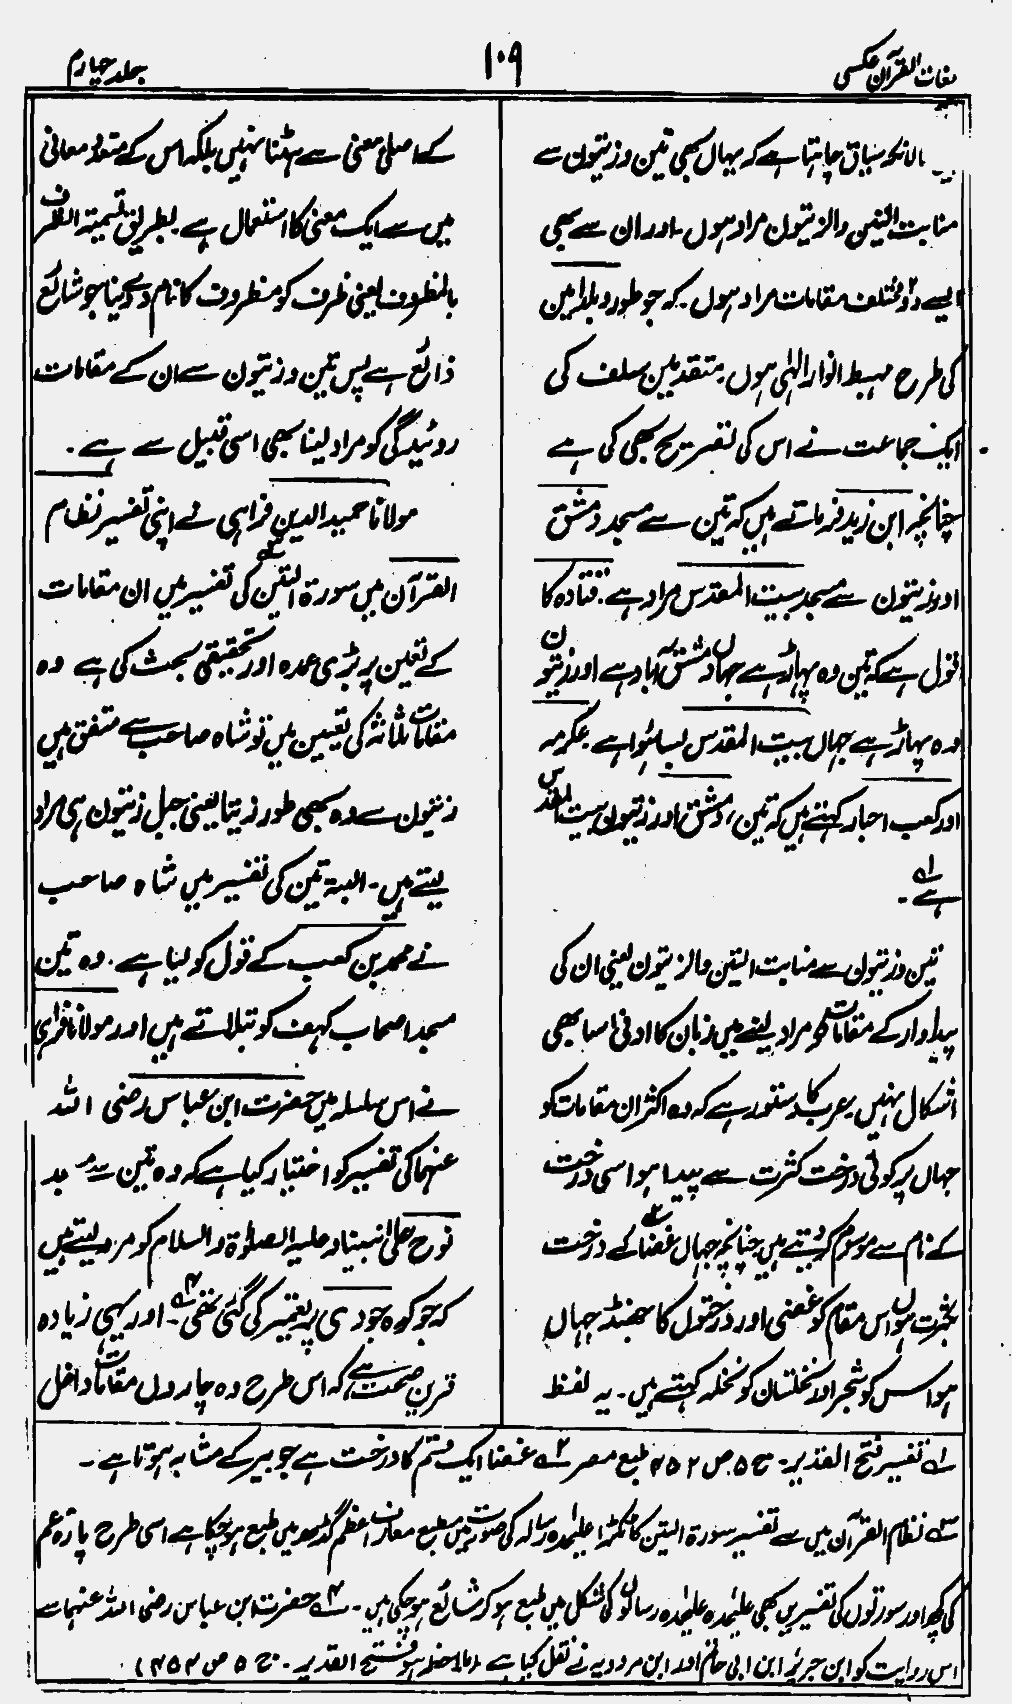 لغات القرآن عکسی
۱۰۹
جلد چہارم
حالانکہ سیاق چاہتا ہے کہ یہاں بھی تین و زیتون سے
منابت التین والزیتون مراد ہوں۔ اور ان سے بھی
ایسے دو مختلف مقامات مراد ہوں۔ کہ جو طور و بلد امین
کی طرح مہبط انوار الٰہی ہوں۔ متقدمین سلف کی
ایک جماعت نے اس کی تصریح بھی کی ہے
چنانچہ ابن زید فرماتے ہیں کہ تین سے مسجد دمشق
اور زیتون سے مسجد بیت المقدس مراد ہے۔ قتادہ کا
قول ہے کہ تین وہ پہاڑ ہے جہاں دمشق آباد ہے اور زیتون
وہ پہاڑ ہے جہاں بیت المقدس بسا ہوا ہے۔ عکرمہ
اور کعب احبار کہتے ہیں کہ تین، دمشق اور زیتون بیت المقدس
ہے ۱؎۔
تین و زیتون سے منابت التین والزیتون یعنی ان کی
پیداوار کے مقامات کو مراد لینے میں زبان کا ادنیٰ سا بھی
اشکال نہیں۔ عرب کا دستور ہے کہ وہ اکثر ان مقامات کو
جہاں پر کوئی درخت کثرت سے پیدا ہو اسی درخت
کے نام سے موسوم کر دیتے ہیں چنانچہ جہاں غضا ۲؎ کے درخت
بکثرت ہوں اس مقام کو غضی اور درختوں کا جھنڈ جہاں
ہو اس کو شجر اور نخلستان کو نخلہ کہتے ہیں۔ یہ لفظ
کے اصلی معنی سے ہٹنا نہیں بلکہ اس کے متعدد معانی
میں سے ایک معنی کا استعمال ہے بطریق تسمیۃ الظرف
بالمظروف یعنی ظرف کو مظروف کا نام دے دینا جو شائع
ذائع ہے پس تین و زیتون سے ان کے مقامات
روئیدگی کو مراد لینا بھی اسی قبیل سے ہے۔
مولانا حمید الدین فراہی نے اپنی تفسیر نظام
القرآن میں سورۃ التین ۳؎ کی تفسیر میں ان مقامات
کے تعین پر بڑی عمدہ اور تحقیقی بحث کی ہے وہ
مقامات ثلاثہ کی تعیین میں تو شاہ صاحب سے متفق ہیں
زیتون سے وہ بھی طور زیتا یعنی جبل زیتون ہی مراد
لیتے ہیں۔ البتہ تین کی تفسیر میں شاہ صاحب
نے محمد بن کعب کے قول کو لیا ہے۔ وہ تین
مسجد اصحاب کہف کو بتلاتے ہیں اور مولانا فراہی
نے اس سلسلہ میں حضرت ابن عباس رضی اللہ
عنہما کی تفسیر کو اختیار کیا ہے کہ وہ تین سے مسجد
نوح علیٰ نبینا و علیہ الصلوٰۃ والسلام کو مراد لیتے ہیں
کہ جو کوہ جودی پر تعمیر کی گئی تھی ۴؎۔ اور یہی زیادہ
قرین صحت ہے کہ اس طرح وہ چاروں مقامات داخل
۱؎ تفسیر فتح القدیر۔ ج ۵ ص ۴۵۲ طبع مصر ۲؎ غضا ایک قسم کا درخت ہے جو بیر کے مشابہ ہوتا ہے۔
۳؎ نظام القرآن میں سے تفسیر سورۃ التین کا ٹکڑا علیحدہ رسالہ کی صورت میں مطبع معارف اعظم گڈھ میں طبع ہو چکا ہے اسی طرح پارۂ عم
کی کچھ اور سورتوں کی تفسیریں بھی علیحدہ علیحدہ رسالوں کی شکل میں طبع ہو کر شائع ہو چکی ہیں۔ ۴؎ حضرت ابن عباس رضی اللہ عنہما سے
اس روایت کو ابن جریر ابن ابی حاتم اور ابن مردویہ نے نقل کیا ہے (ملاحظہ ہو فتح القدیر۔ ج ۵ ص ۴۵۳)